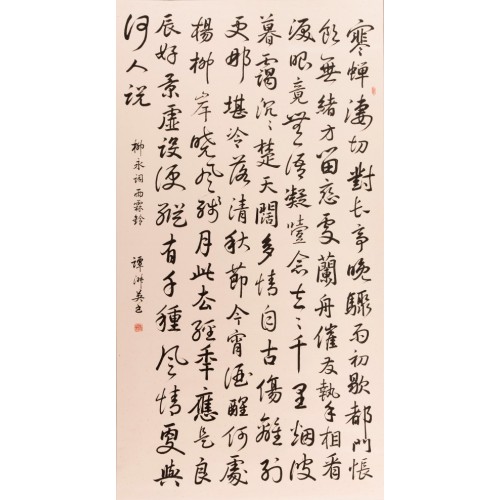 寒蟬淒切對長亭晚驟雨初歇都門帳
飲無緒方留戀處蘭舟催發執手相看
淚眼竟無語凝噎念去々千里烟波
暮靄沉々楚天闊多情自古傷離別
更那堪冷落清秋節今宵酒醒何處
楊柳岸曉風殘月此去經年應是良
辰好景虛設便縱有千種風情更與
何人說
柳永詞雨霖鈴
譚英书